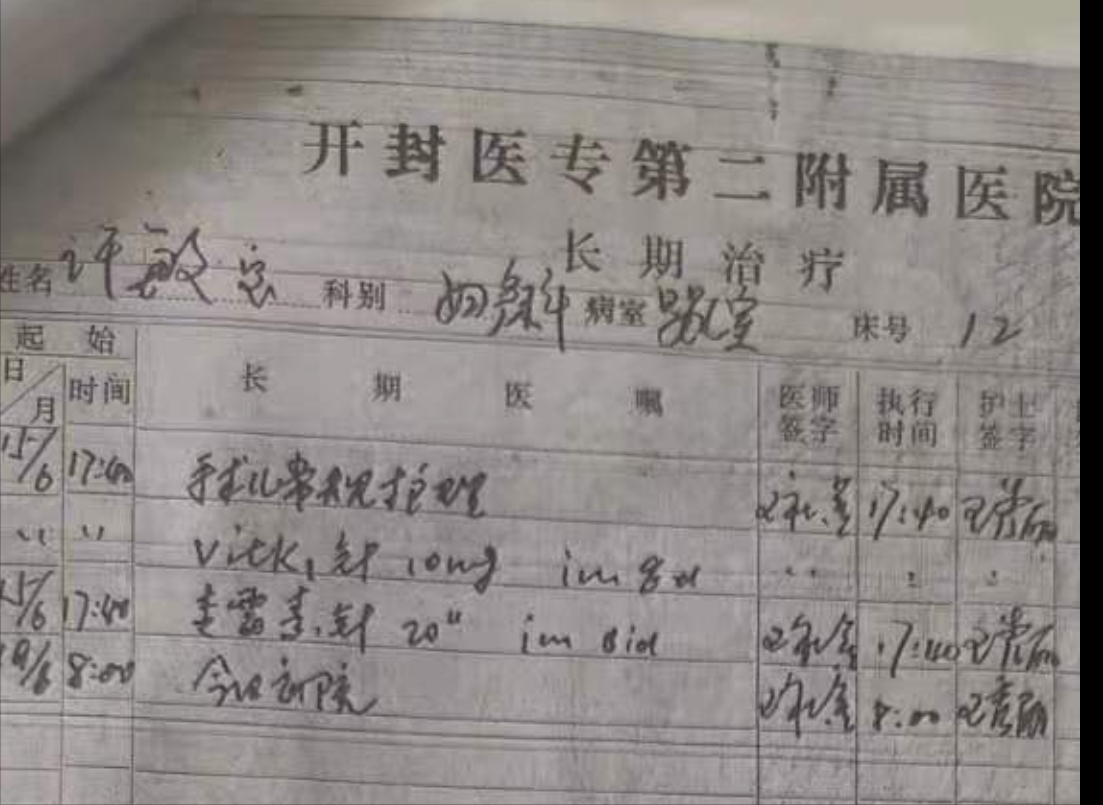 开封医专第二附属医院
长期治疗
姓名 许敏 科别 妇 科 病室 婴儿室 床号 12
起始 长期医嘱 医师签字 执行时间 护士签字
日/月 时间
15/6 17:40 手术儿常规护理 17:40
〃 〃 vitk₁针 10mg im qd 〃 〃 〃
15/6 17:40 针 20〃 im Bid 17:40
19/6 8:00 今日出院 8:00